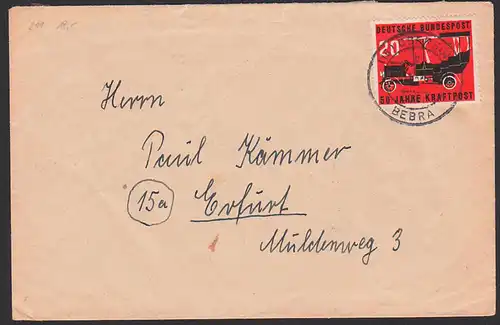 DEUTSCHE BUNDESPOST
20
50 JAHRE KRAFTPOST
BEBRA
Herrn
Paul Kämmer
15a Erfurt
Muldenweg 3